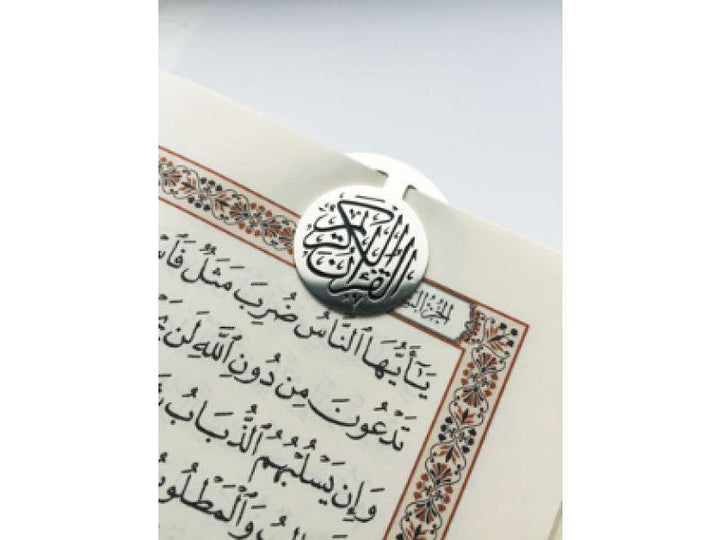 القرآن الكريم
الجزء
يَٰٓأَيُّهَا ٱلنَّاسُ ضُرِبَ مَثَلٌ
تَدْعُونَ مِن دُونِ ٱللَّهِ لَن
وَإِن يَسْلُبْهُمُ ٱلذُّبَابُ
وَٱلْمَطْلُوبُ